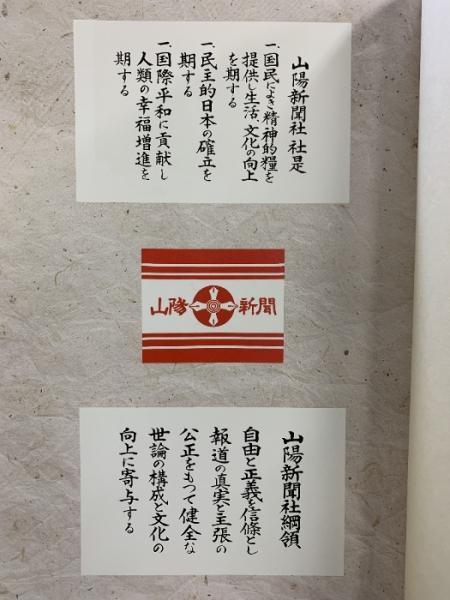 山陽新聞社 社是
一、国民によき精神的糧を
提供し生活、文化の向上
を期する
一、民主的日本の確立を
期する
一、国際平和に貢献し
人類の幸福増進を
期する
山陽 新聞
山陽新聞社綱領
自由と正義を信條とし
報道の真実と主張の
公正をもつて健全な
世論の構成と文化の
向上に寄与する